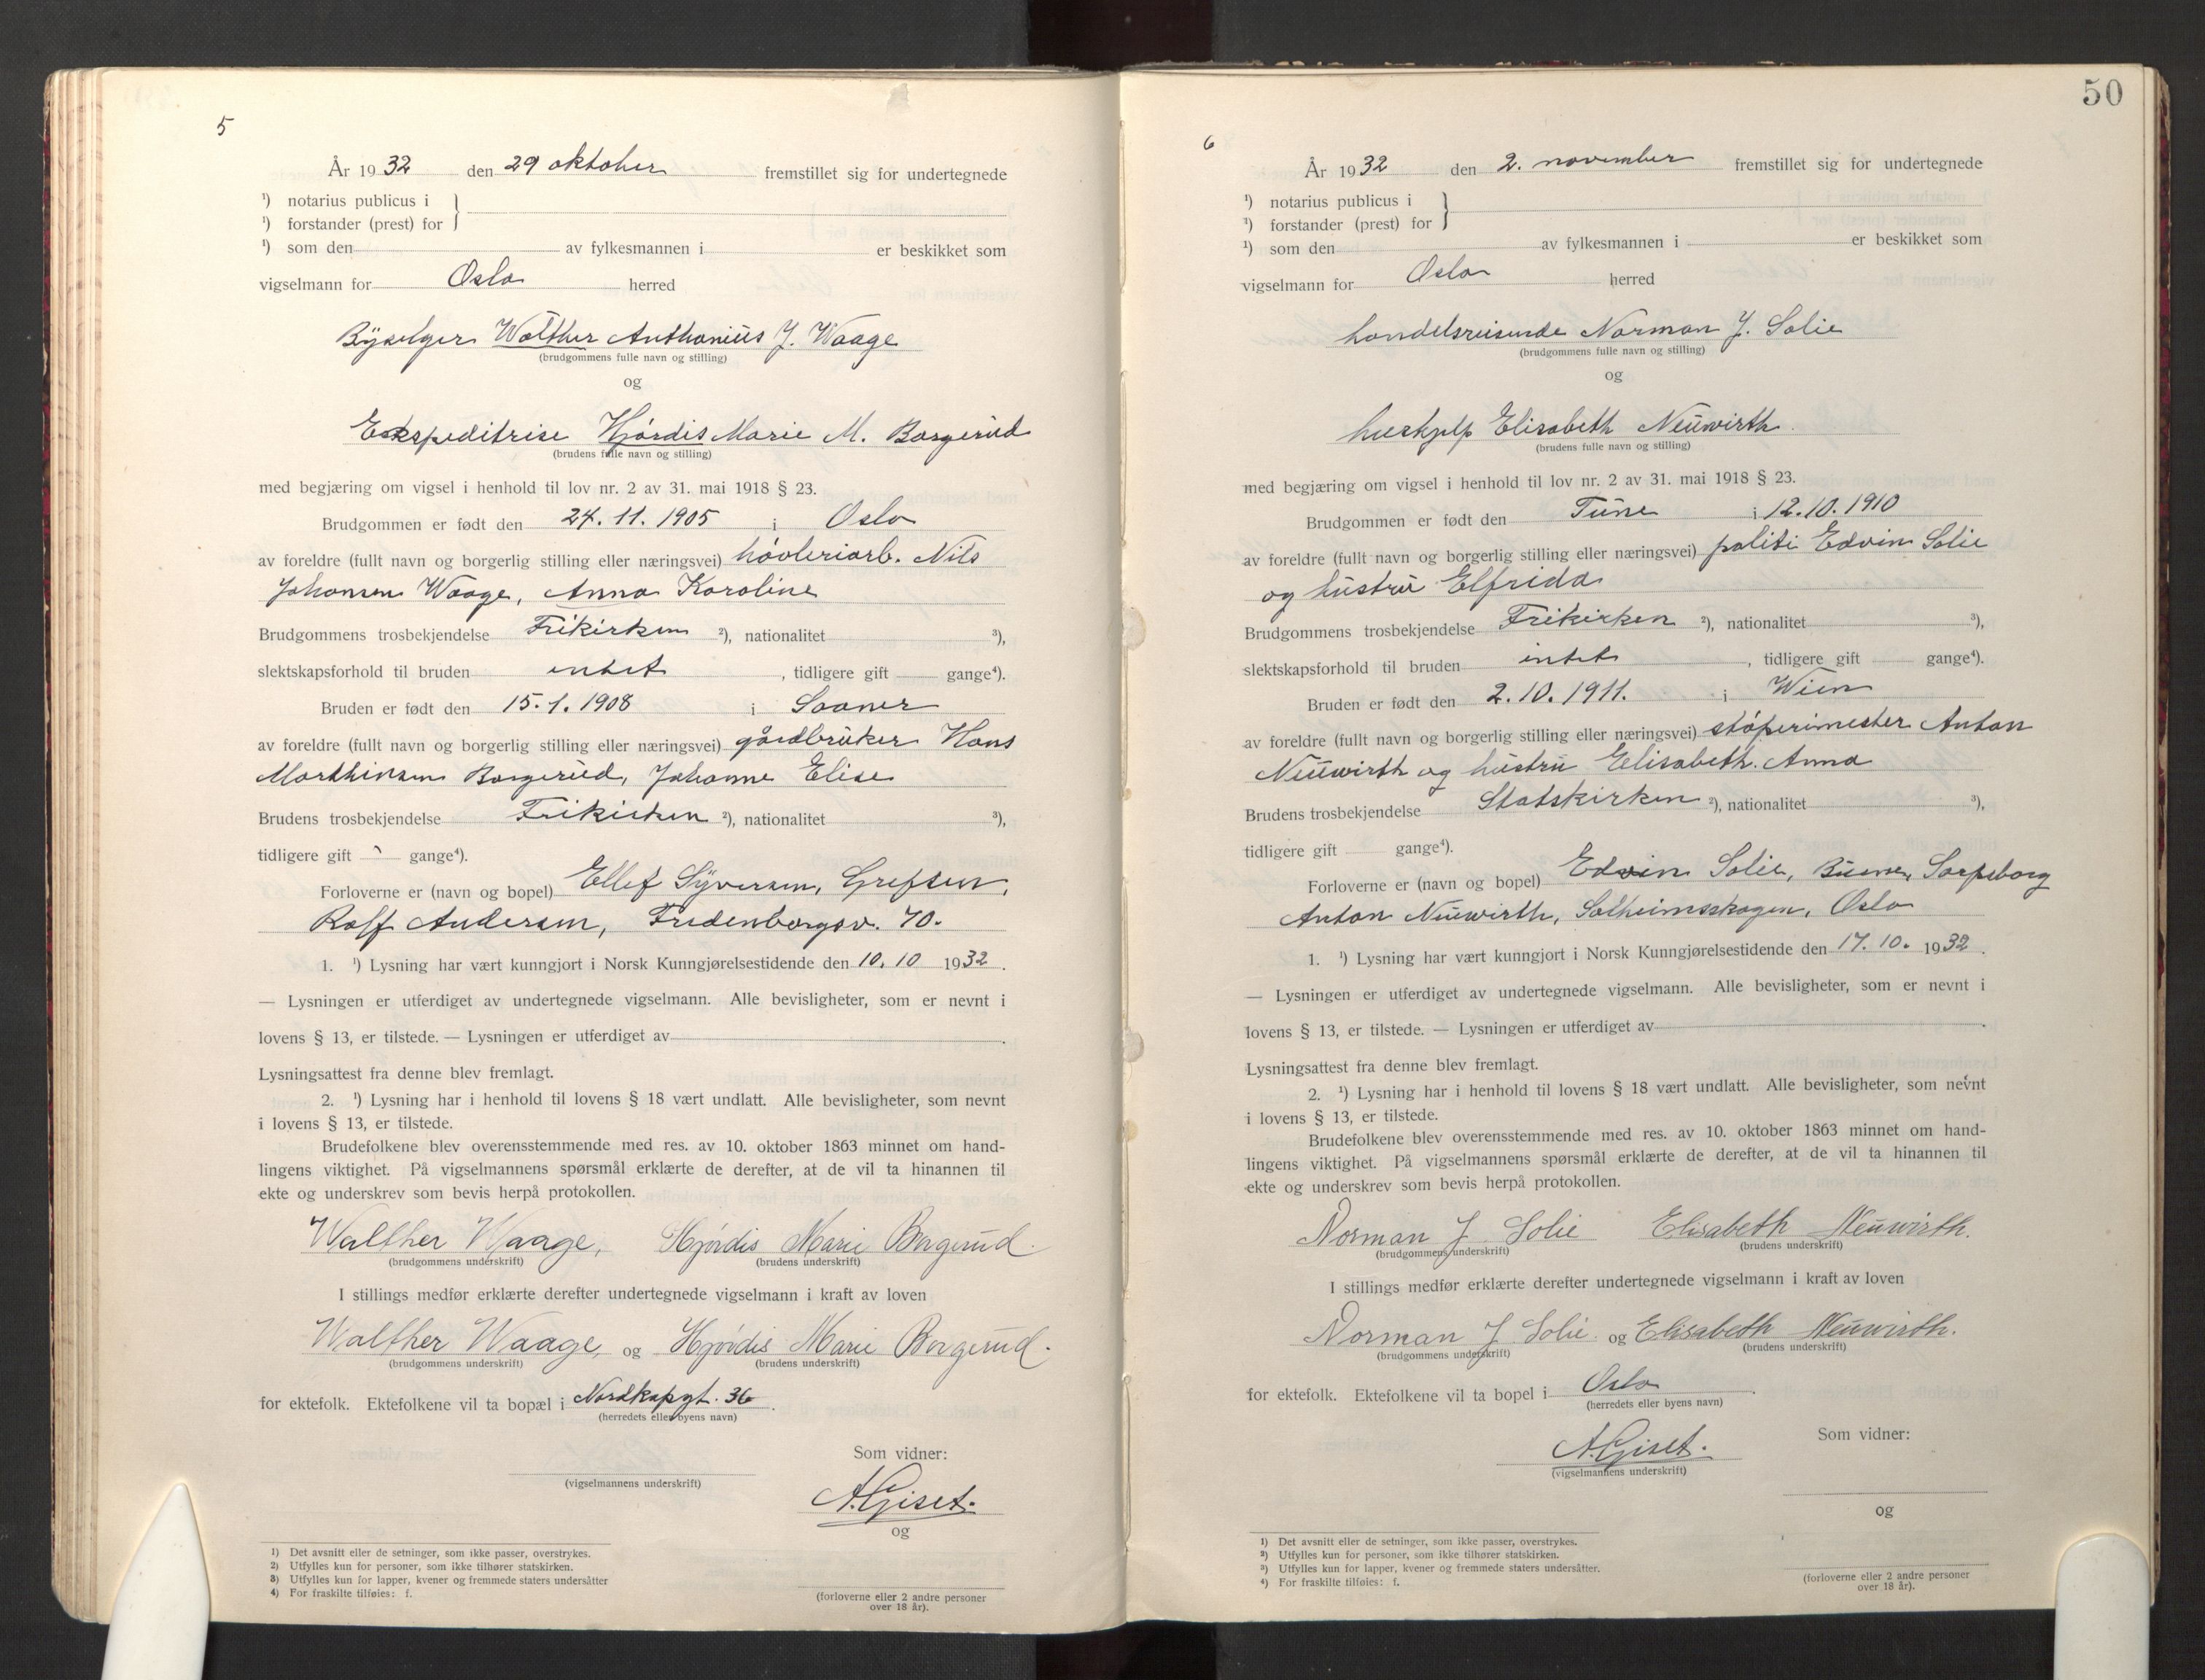 5
År 1932 den 29 oktober fremstillet sig for undertegnede
¹) notarius publicus i
¹) forstander (prest) for
¹) som den av fylkesmannen i er beskikket som
vigselmann for Oslo herred
Byselger Walther Anthonius J. Waage
(brudgommens fulle navn og stilling)
og
Ekspeditrise Hjørdis Marie M. Borgerud
(brudens fulle navn og stilling)
med begjæring om vigsel i henhold til lov nr. 2 av 31. mai 1918 § 23.
Brudgommen er født den 24. 11. 1905 i Oslo
av foreldre (fullt navn og borgerlig stilling eller næringsvei) høvleriarb. Nils
Johansen Waage, Anna Karoline
Brudgommens trosbekjendelse Frikirken ²), nationalitet ³),
slektskapsforhold til bruden intet , tidligere gift gange⁴).
Bruden er født den 15. 1. 1908 i Saaner
av foreldre (fullt navn og borgerlig stilling eller næringsvei) gårdbruker Hans
Marthinsen Borgerud, Johanne Elise
Brudens trosbekjendelse Frikirken ²), nationalitet ³),
tidligere gift gange⁴).
Forloverne er (navn og bopel) Ellef Syversen, Grefsen,
Rolf Andersen, Fredenborgsv. 70.
1. ¹) Lysning har vært kunngjort i Norsk Kunngjørelsestidende den 10. 10 1932.
— Lysningen er utferdiget av undertegnede vigselmann. Alle bevisligheter, som er nevnt i
lovens § 13, er tilstede. — Lysningen er utferdiget av .
Lysningsattest fra denne blev fremlagt.
2. ¹) Lysning har i henhold til lovens § 18 vært undlatt. Alle bevisligheter, som nevnt
i lovens § 13, er tilstede.
Brudefolkene blev overensstemmende med res. av 10. oktober 1863 minnet om hand-
lingens viktighet. På vigselmannens spørsmål erklærte de derefter, at de vil ta hinannen til
ekte og underskrev som bevis herpå protokollen.
Walther Waage, Hjørdis Marie Borgerud.
(brudgommens underskrift) (brudens underskrift)
I stillings medfør erklærte derefter undertegnede vigselmann i kraft av loven
Walther Waage, og Hjørdis Marie Borgerud.
(brudgommens underskrift) (brudens underskrift)
for ektefolk. Ektefolkene vil ta bopæl i Nordkapgt. 36 .
(herredets eller byens navn)
Som vidner:
(vigselmannens underskrift)
A. Giset.
og
¹) Det avsnitt eller de setninger, som ikke passer, overstrykes.
²) Utfylles kun for personer, som ikke tilhører statskirken.
³) Utfylles kun for lapper, kvener og fremmede staters undersåtter
⁴) For fraskilte tilføies: f.
(forloverne eller 2 andre personer
over 18 år).
50
6
År 1932 den 2. november fremstillet sig for undertegnede
¹) notarius publicus i
¹) forstander (prest) for
¹) som den av fylkesmannen i er beskikket som
vigselmann for Oslo herred
handelsreisende Norman J. Solie
(brudgommens fulle navn og stilling)
og
huskjelp Elisabeth Neuwirth.
(brudens fulle navn og stilling)
med begjæring om vigsel i henhold til lov nr. 2 av 31. mai 1918 § 23.
Brudgommen er født den Tune i 12. 10. 1910
av foreldre (fullt navn og borgerlig stilling eller næringsvei) politi Edvin Solie
og hustru Elfrida
Brudgommens trosbekjendelse Frikirken ²), nationalitet ³),
slektskapsforhold til bruden intet , tidligere gift gange⁴).
Bruden er født den 2. 10. 1911. i Wien
av foreldre (fullt navn og borgerlig stilling eller næringsvei) støperimester Anton
Neuwirth og hustru Elisabeth. Anna
Brudens trosbekjendelse Statskirken ²), nationalitet ³),
tidligere gift gange⁴).
Forloverne er (navn og bopel) Edvin Solie, Sarpsborg
Anton Neuwirth, Solheimsskogen, Oslo
1. ¹) Lysning har vært kunngjort i Norsk Kunngjørelsestidende den 17. 10. 1932.
— Lysningen er utferdiget av undertegnede vigselmann. Alle bevisligheter, som er nevnt i
lovens § 13, er tilstede. — Lysningen er utferdiget av .
Lysningsattest fra denne blev fremlagt.
2. ¹) Lysning har i henhold til lovens § 18 vært undlatt. Alle bevisligheter, som nevnt
i lovens § 13, er tilstede.
Brudefolkene blev overensstemmende med res. av 10. oktober 1863 minnet om hand-
lingens viktighet. På vigselmannens spørsmål erklærte de derefter, at de vil ta hinannen til
ekte og underskrev som bevis herpå protokollen.
Norman J Solie Elisabeth Neuwirth.
(brudgommens underskrift) (brudens underskrift)
I stillings medfør erklærte derefter undertegnede vigselmann i kraft av loven
Norman J Solie og Elisabeth Neuwirth.
(brudgommens underskrift) (brudens underskrift)
for ektefolk. Ektefolkene vil ta bopel i Oslo .
(herredets eller byens navn)
A. Giset.
(vigselmannens underskrift)
Som vidner:
og
¹) Det avsnitt eller de setninger, som ikke passer, overstrykes.
²) Utfylles kun for personer, som ikke tilhører statskirken.
³) Utfylles kun for lapper, kvener og fremmede staters undersåtter.
⁴) For fraskilte tilføies: f.
(forloverne eller 2 andre personer
over 18 år).